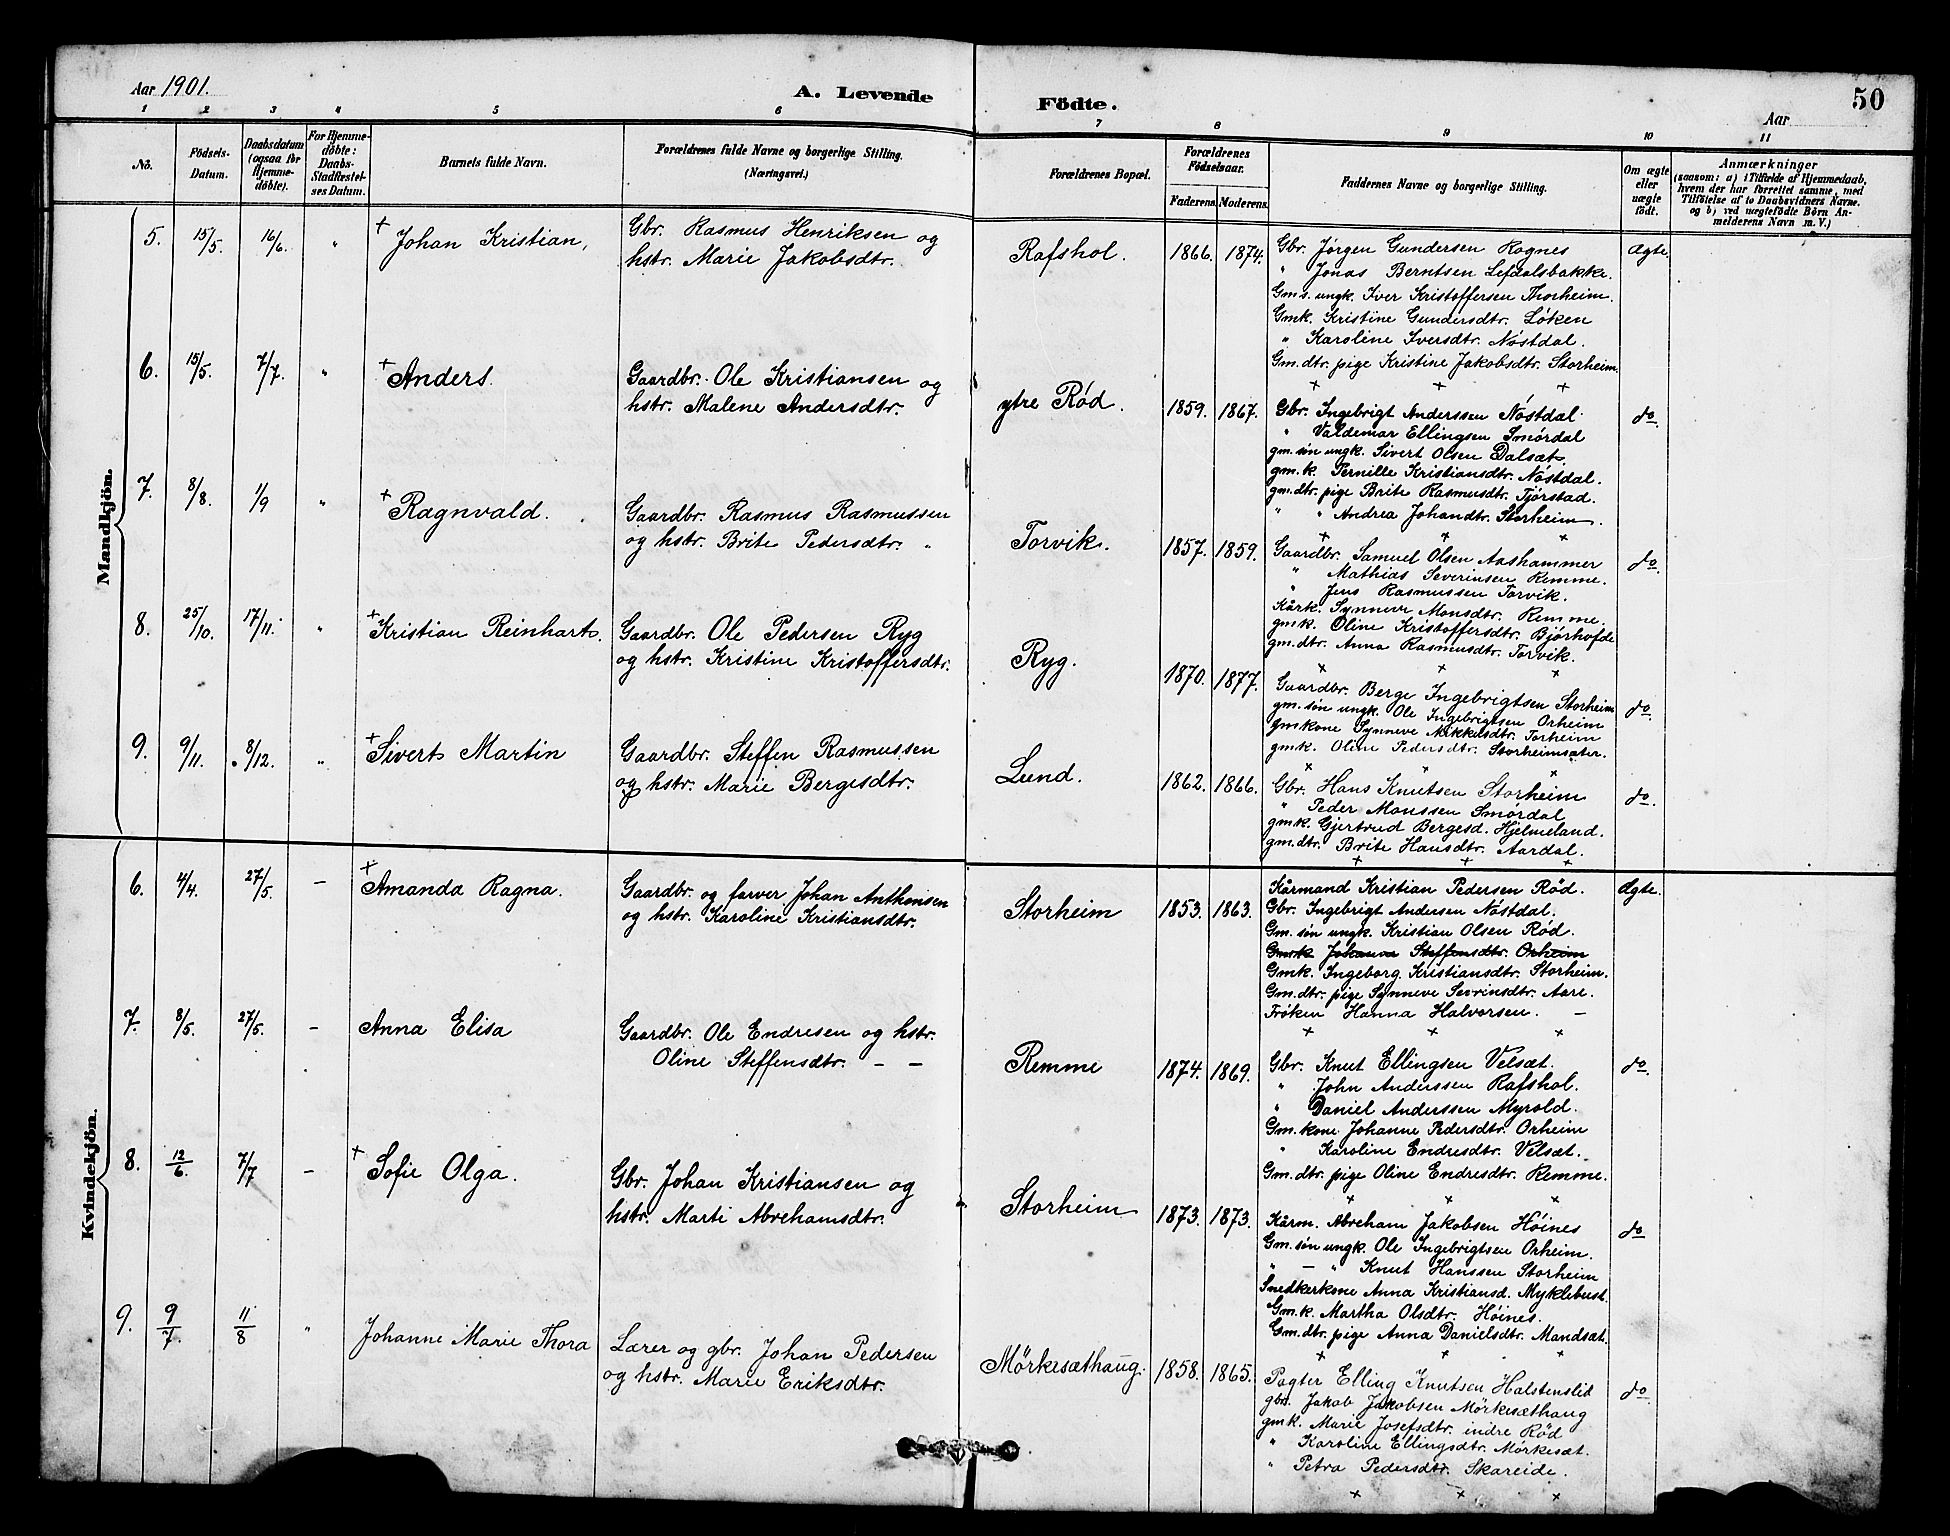 Aar 1901.
A. Levende Födte.
Aar
50
1 2 3 4 5 6 7 8 9 10 11
No.
Födsels-Datum.
Daabsdatum (ogsaa for Hjemmedöbte).
For Hjemmedöbte: Daabs-Stadfæstelses Datum.
Barnets fulde Navn.
Forældrenes fulde Navne og borgerlige Stilling. (Næringsvei.)
Forældrenes Bopæl.
Forældrenes Födselsaar.
Faderens. Moderens.
Faddernes Navne og borgerlige Stilling.
Om ægte eller uægte födt.
Anmærkninger
(saasom: a) i Tilfælde af Hjemmedaab, hvem der har forrettet samme, med Tilföielse af to Daabsvidners Navne. og b) ved uægtefödte Börn Anmelderens Navn m. V.)
Mandkjön.
5. 15/5. 16/6. " + Johan Kristian,
Gbr. Rasmus Henriksen og
hstr. Marie Jakobsdtr.
Rafshol. 1866. 1874.
Gbr. Jørgen Gundersen Ragnes
" Jonas Berntsen Lefdalsbakke.
Gm.s. ungk. Iver Kristoffersen Thorheim.
Gmk. Kristine Gundersdtr. Løken
" Karoline Iversdtr. Nøstdal.
Gm.dtr. pige Kristine Jakobsdtr. Storheim.
Ægte.
+ + +
6. 15/5. 7/7. " + Anders.
Gaardbr. Ole Kristiansen og
hstr. Malene Andersdtr.
ytre Rød. 1859. 1867.
Gbr. Ingebrigt Anderssen Nøstdal.
" Valdemar Ellingsen Smørdal
gm.søn ungk. Sivert Olsen Dalsæt.
gm.k. Pernille Kristiansdtr. Nøstdal.
gm.dtr. pige Brite Rasmusdtr. Tjørstad.
" " Andrea Johandtr. Storheim.
do.
+ + +
7. 8/8. 1/9 " + Ragnvald.
Gaardbr. Rasmus Rasmussen
og hstr. Brite Pedersdtr. "
Torvik. 1857. 1859.
Gaardbr. Samuel Olsen Aashammer
" Mathias Severinsen Remme.
" Jens Rasmussen Torvik.
Kårk. Synneve Monsdtr. Remme.
gmk. Oline Kristoffersdtr. Bjørhofde
gm.dtr. Anna Rasmusdtr. Torvik.
do.
+ + +
8. 25/10. 17/11. " + Kristian Reinhart.
Gaardbr. Ole Pedersen Ryg
og hstr. Kristine Kristoffersdtr.
Ryg. 1870. 1877.
Gaardbr. Berge Ingebrigtsen Storheim
gm.søn ungk. Ole Ingebrigtsen Orheim
gmkone Synneve Mikkelsdtr. Torheim
gmk. Oline Pedersdtr. Storheimsæter.
do.
+ + +
9. 9/11. 8/12. " + Sivert Martin
Gaardbr. Steffen Rasmussen
og hstr. Marie Bergesdtr.
Lund. 1862. 1866.
Gbr. Hans Knutsen Storheim
" Peder Monssen Smørdal
gmk. Gjertrud Bergesd. Hjelmeland.
gm.dtr. Brite Hansdtr. Aardal.
do.
+ + +
Kvindekjön.
6. 4/4. 27/5. – + Amanda Ragna.
Gaardbr. og farver Johan Anthonsen
og hstr. Karoline Kristiansdtr.
Storheim 1853. 1863.
Kårmand Kristian Pedersen Rød.
Gbr. Ingebrigt Andersen Nøstdal.
Gm. søn ungk. Kristian Olsen Rød.
Gmk. Johanne Steffensdtr. Orheim
Gmk. Ingeborg Kristiansdtr. Storheim.
Gm.dtr. pige Synneve Sevrinsdtr. Aare.
Frøken Hanna Halvorsen. –
Ægte.
+ + +
7. 8/5. 27/5. – Anna Elisa
Gaardbr. Ole Endresen og hstr.
Oline Steffensdtr. – –
Remme 1874. 1869.
Gbr. Knut Ellingsen Velsæt.
" John Anderssen Rafshol.
" Daniel Anderssen Myrold.
Gm. kone Johanne Pedersdtr. Orheim
" Karoline Endresdtr. Velsæt.
Gm.dtr. pige Oline Endresdtr. Remme.
do.
+ + +
8. 12/6. 7/7 – + Sofie Olga.
Gbr. Johan Kristiansen og
hstr. Marti Abrehamsdtr.
Storheim 1873. 1873.
Kårm. Abreham Jakobsen Høines
Gm. søn ungk. Ole Ingebrigtsen Orheim.
" – " Knut Hanssen Storheim
Snedkerkone Anna Kristiansd. Myklebust.
Gm.k. Martha Olsdtr. Høines.
Gm.dtr. pige Anna Danielsdtr. Mandsæt.
do
+ + +
9. 9/7. 11/8 " Johanne Marie Thora
Lærer og gbr. Johan Pedersen
og hstr. Marie Eriksdtr.
Mörkesæthaug. 1858. 1865.
Pagter Elling Knutsen Halstenslid
gbr. Jakob Jakobsen Mörkesæthaug
gmk. Marie Josefsdtr. indre Rød
" Karoline Ellingsdtr. Mörkesæt.
" Petra Pedersdtr. Skareide.
do.
+ + +